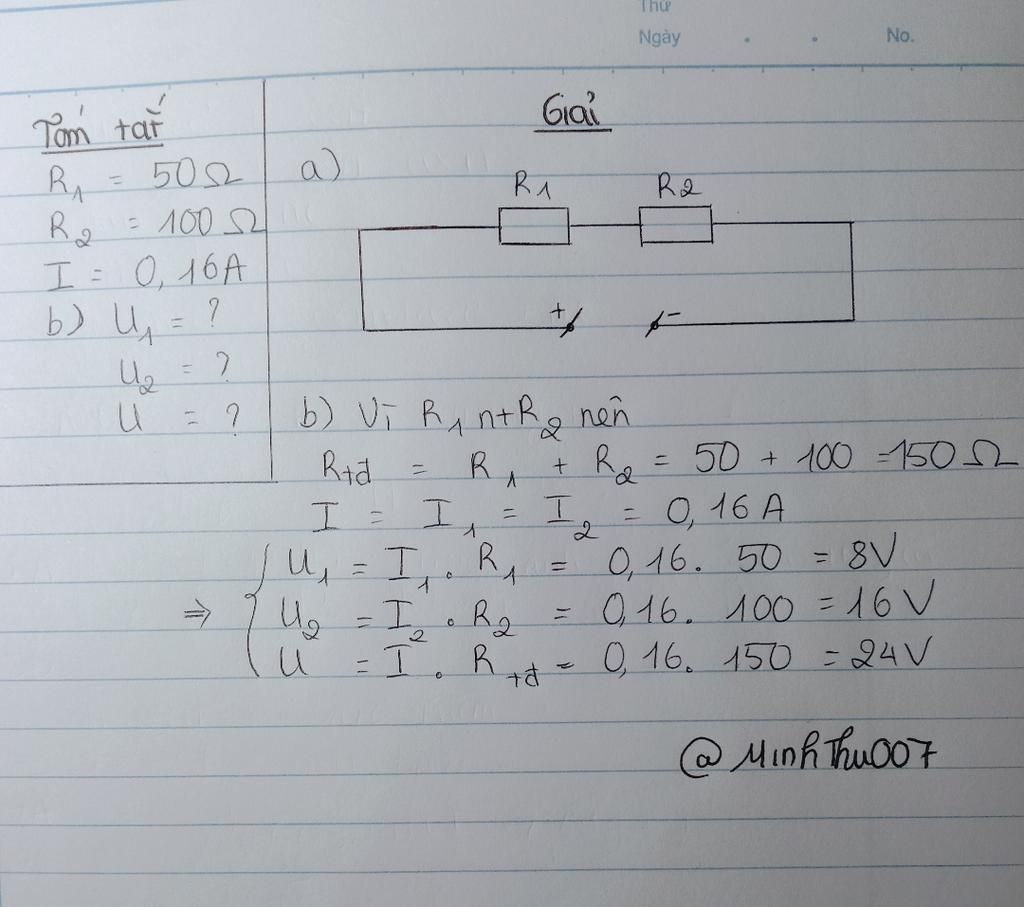 Thứ
Ngày . . No.
Tóm tắt
R1 = 50Ω
R2 = 100Ω
I = 0,16A
b) U1 = ?
U2 = ?
U = ?
Giải
a)
R1 R2
+ -
b) Vì R1 nt R2 nên
Rtđ = R1 + R2 = 50 + 100 = 150Ω
I = I1 = I2 = 0,16A
⇒ { U1 = I1 . R1 = 0,16. 50 = 8V
U2 = I2 . R2 = 0,16. 100 = 16V
U = I . Rtđ = 0,16. 150 = 24V
@MinhThu007